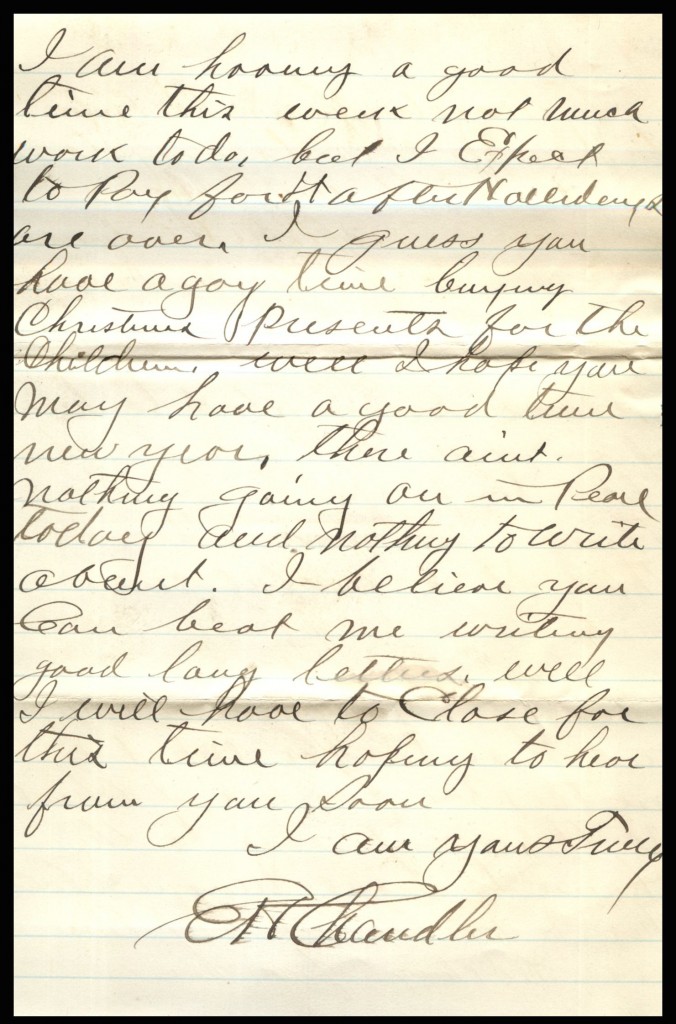 I am having a good
time this week not much
work to do, but I Expect
to Pay for it after Hollidays
are over. I guess you
have a gay time buying
Christmas Presents for the
Children. well I hope you
may have a good time
new year, there aint.
nothing going on in Pearl
today and nothing to write
about. I believe you
Can beat me writing
good long letters. well
I will have to Close for
this time hoping to hear
from you soon
I am yours Truly
Chandler